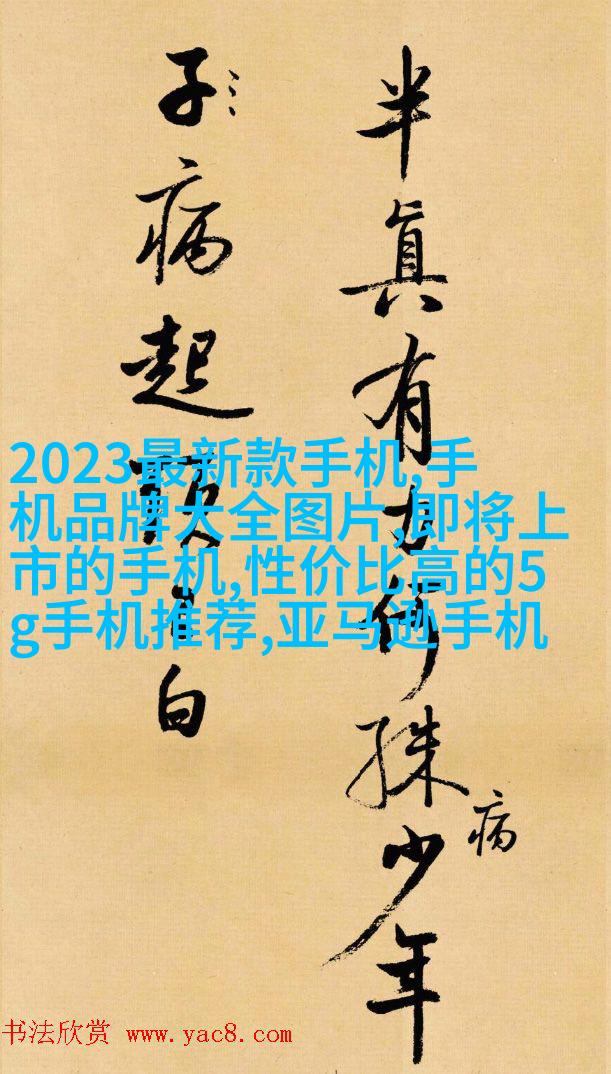 半真有力何殊少年
病
子病起頭已白
2023最新款手机,手
机品牌大全图片,即将上
市的手机,性价比高的5
g手机推荐,亚马逊手机
书法欣赏 www.yac8.com